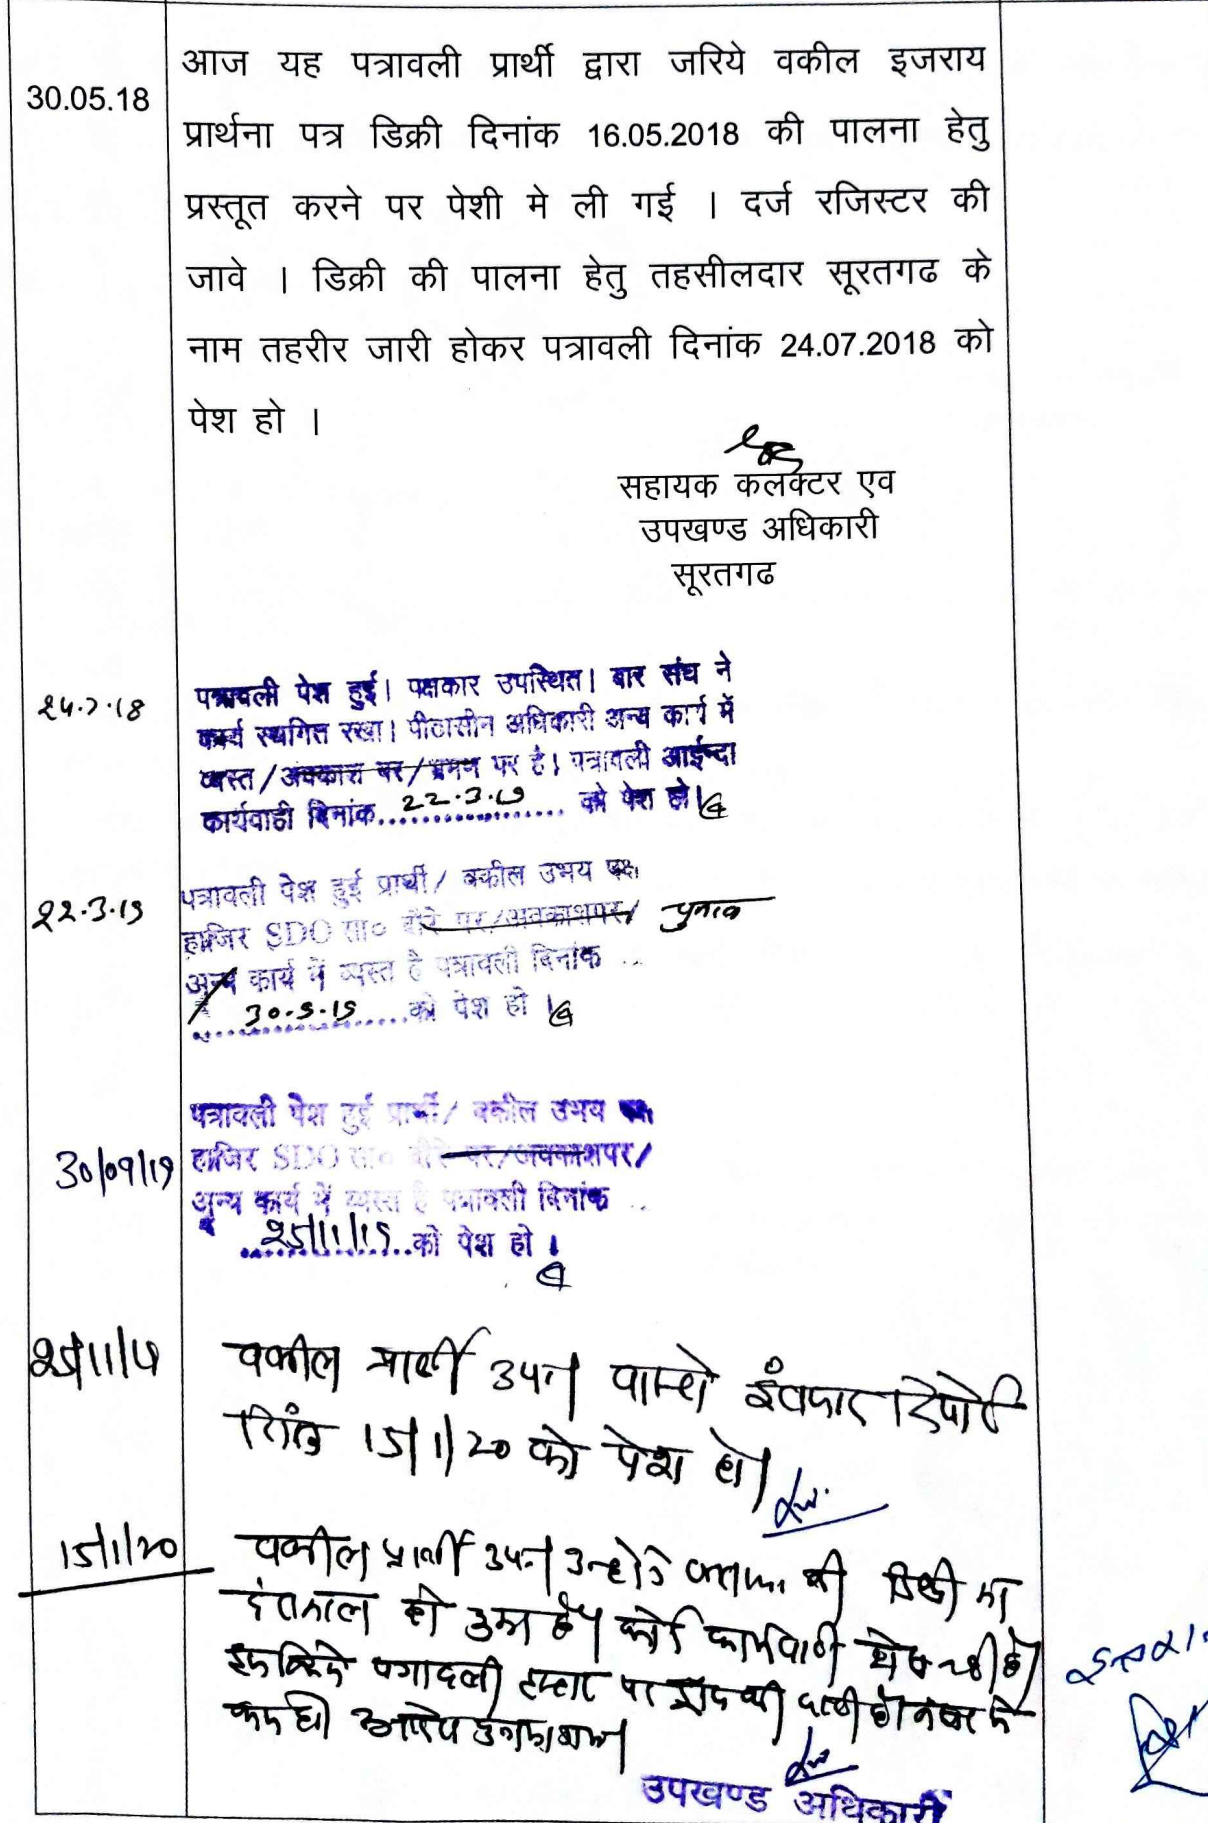 आज यह पत्रावली प्रार्थी द्वारा जरिये वकील इजराय
30.05.18
प्रार्थना पत्र डिक्री दिनांक 16.05.2018 की पालना हेतु
प्रस्तूत करने पर पेशी मे ली गई । दर्ज रजिस्टर की
जावे । डिक्री की पालना हेतु तहसीलदार सूरतगढ के
नाम तहरीर जारी होकर पत्रावली दिनांक 24.07.2018 को
पेश हो ।
सहायक कलक्टर एव
उपखण्ड अधिकारी
सूरतगढ
24.7.18
पत्रावली पेश हुई। पक्षकार उपस्थित। बार संघ ने
कार्य स्थगित रखा। पीठासीन अधिकारी अन्य कार्य में
व्यस्त/अवकाश पर/भ्रमण पर है। पत्रावली आईन्दा
कार्यवाही दिनांक....22.3.19.... को पेश हो।
22.3.19
पत्रावली पेश हुई प्रार्थी/ वकील उभय पक्ष
हाजिर SDO सा० दौरे पर/अवकाशपर/ चुनाव
अन्य कार्य में व्यस्त है पत्रावली दिनांक ..
को पेश हो ।
पत्रावली पेश हुई प्रार्थी/ वकील उभय पक्ष
30/09/19
हाजिर SDO सा० दौरे पर/अवकाशपर/
अन्य कार्य में व्यस्त है पत्रावली दिनांक ..
25/11/19 को पेश हो ।
25/11/19
वकील प्रार्थी उप० वास्ते रिपोर्ट
15/1/20 को पेश हो।
15/1/20
वकील प्रार्थी उप० उन्होने की डिक्री का
कोई कार्यवाही शेष नही है
उपखण्ड अधिकारी